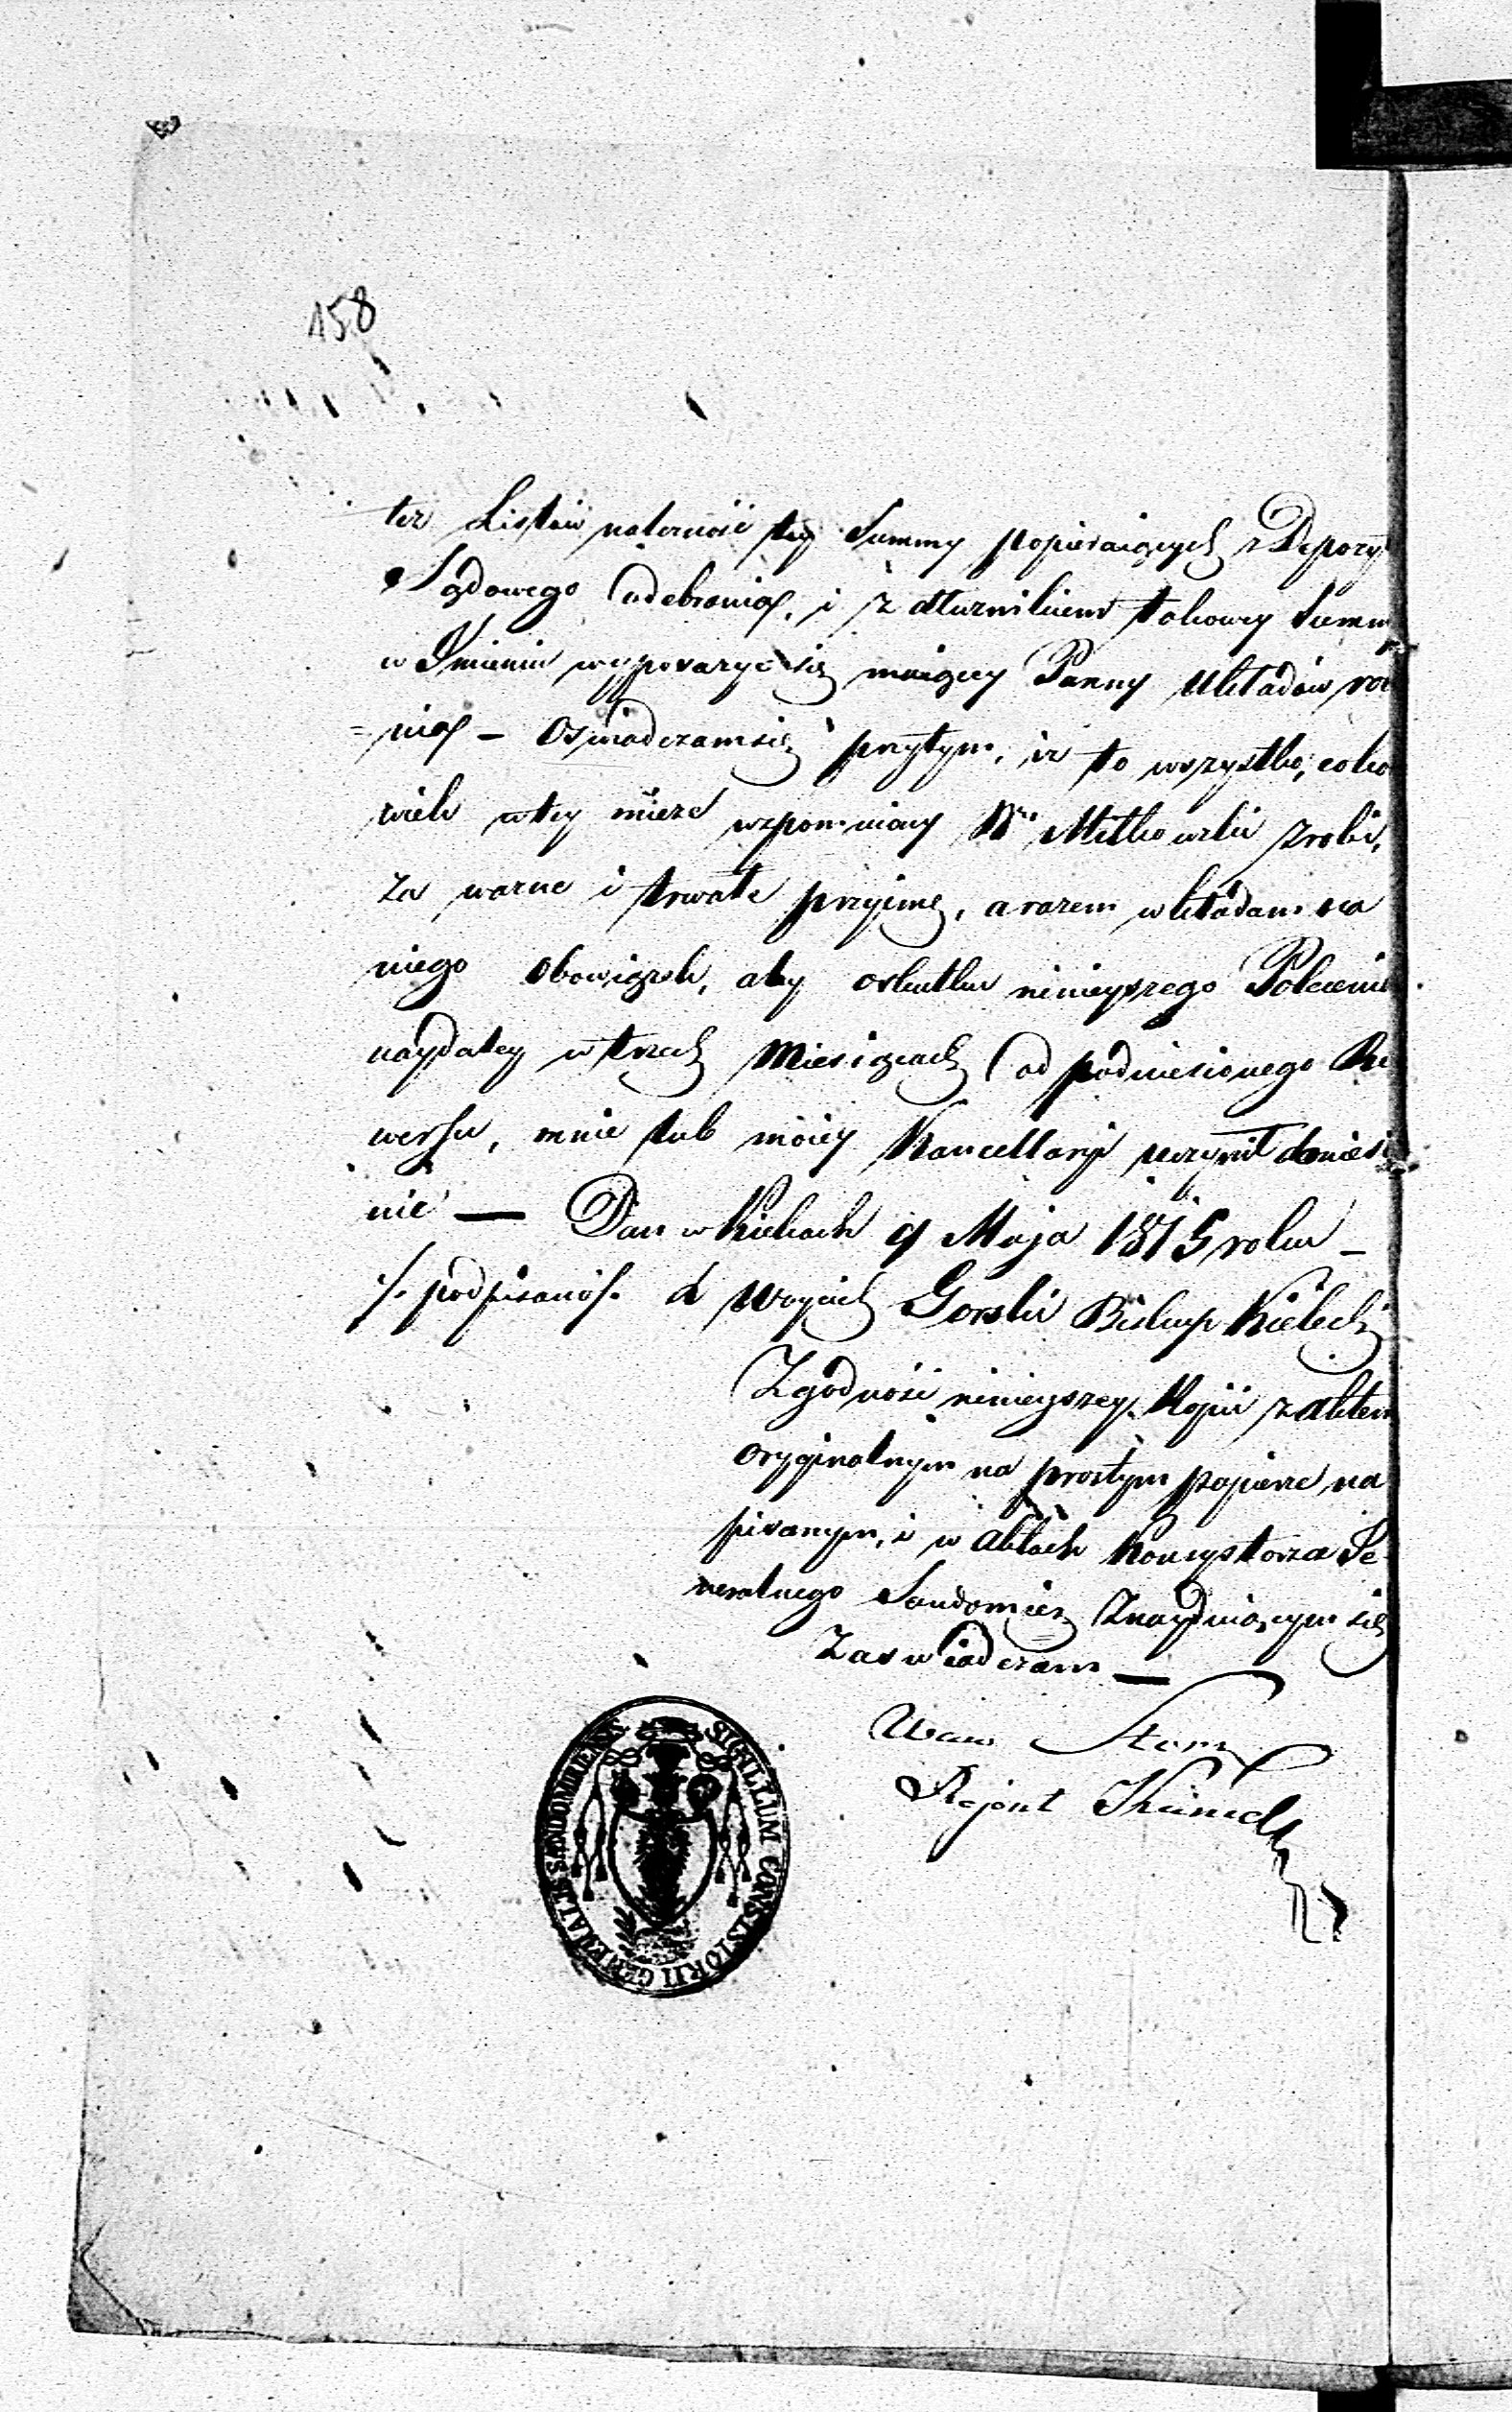 158
też Listów należność tey Summy popieraiących z Depozy
Sądowego odebrania, i z dłużnikiem takowey Summ
w Jmieniu wyposażyć się maiącey Panny układów ro
= nia – Oswiadczam się przytym, iż to wszystko, coko
wiek w tey mierze wspomniony Miłkowski zrobi,
za ważne i trwałe przyimę, a razem wkładam na
niego obowiązek, aby o skutku ninieyszego Polecenia
naydaley w trzech Miesiącach od podniesionego Re
wersu, mnie lub moiey Kancellaryi uczynił doniesie
nie — Dan w Kielcach 9 Maja 1815 roku –
/. podpisano /. Woyciech Gorski Biskup Kielecki
Zgodność ninieyszey Kopii z aktem
oryginalnym na prostym papierze na
pisanym, i w aktach Konsystorza Je
neralnego Sandomier: Znayduiącym się
Zaswiadczam —
Rejent
SIGILLUM CONSISTORII GENERALIS SANDOMIRIENSIS